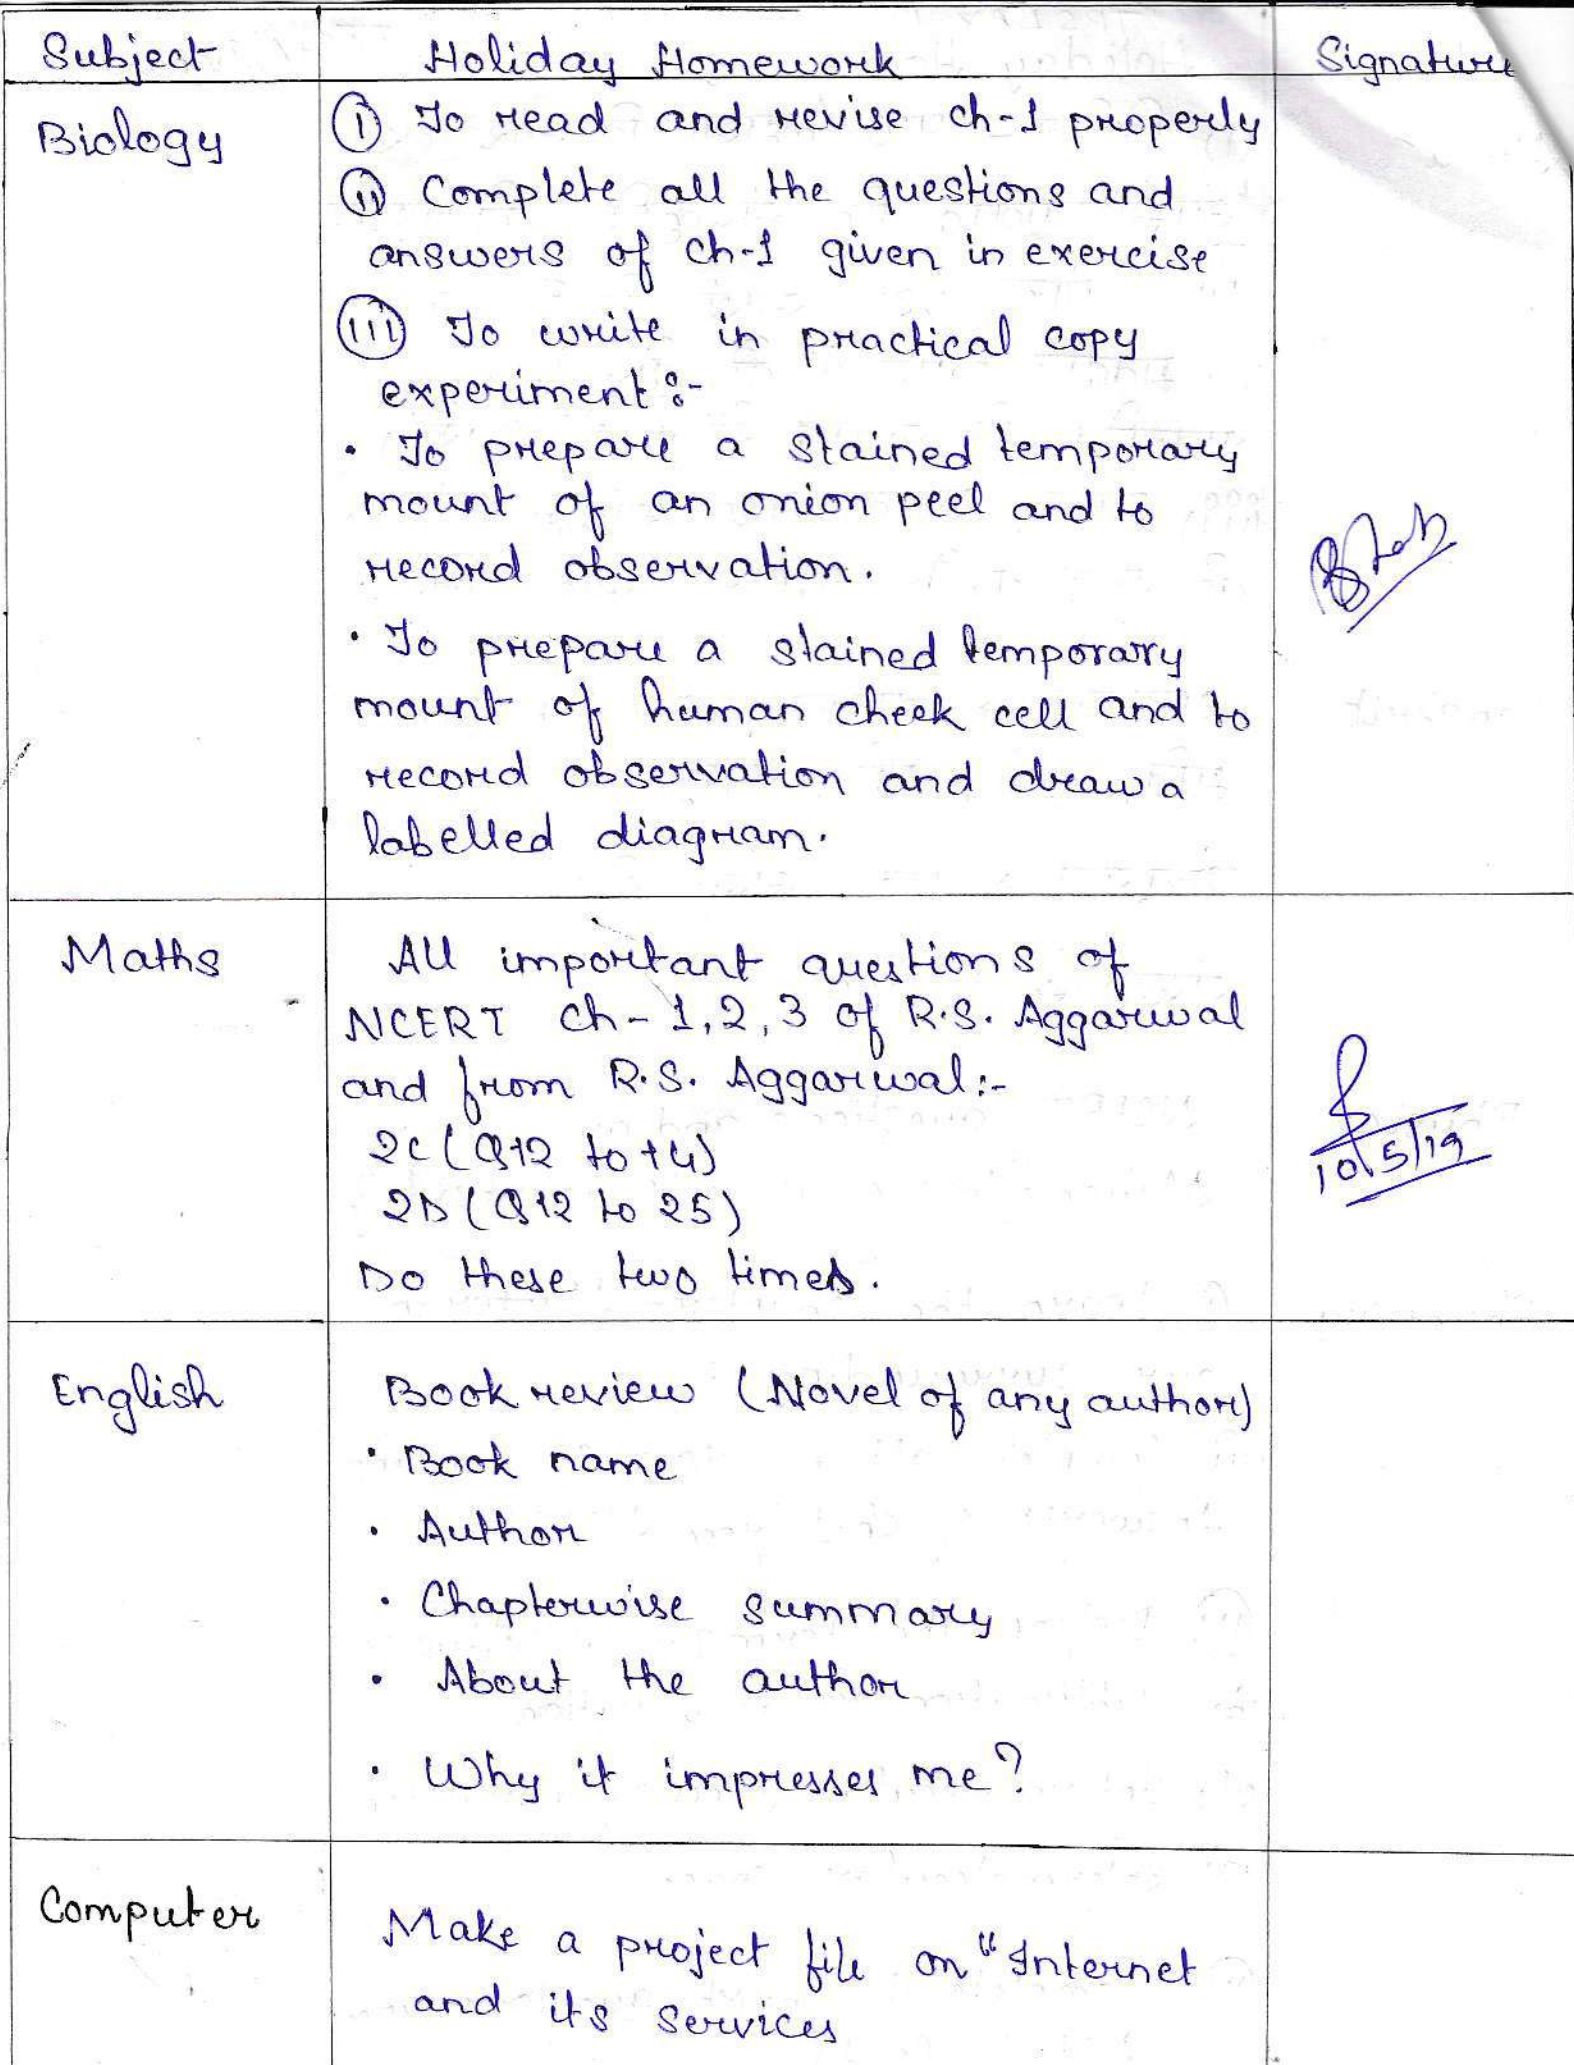 Subject Holiday Homework Signature
Biology (i) To read and revise ch-1 properly
(ii) Complete all the questions and
answers of ch-1 given in exercise
(iii) To write in practical copy
experiment :-
• To prepare a stained temporary
mount of an onion peel and to
record observation.
• To prepare a stained temporary
mount of human cheek cell and to
record observation and draw a
labelled diagram.
Maths All important questions of
NCERT ch-1,2,3 of R.S. Aggarwal
and from R.S. Aggarwal :-
2C (Q12 to 14)
10/5/19
2D (Q12 to 25)
Do these two times.
English Book review (Novel of any author)
• Book name
• Author
• Chapterwise summary
• About the author
• Why it impresses me?
Computer Make a project file on "Internet
and its services